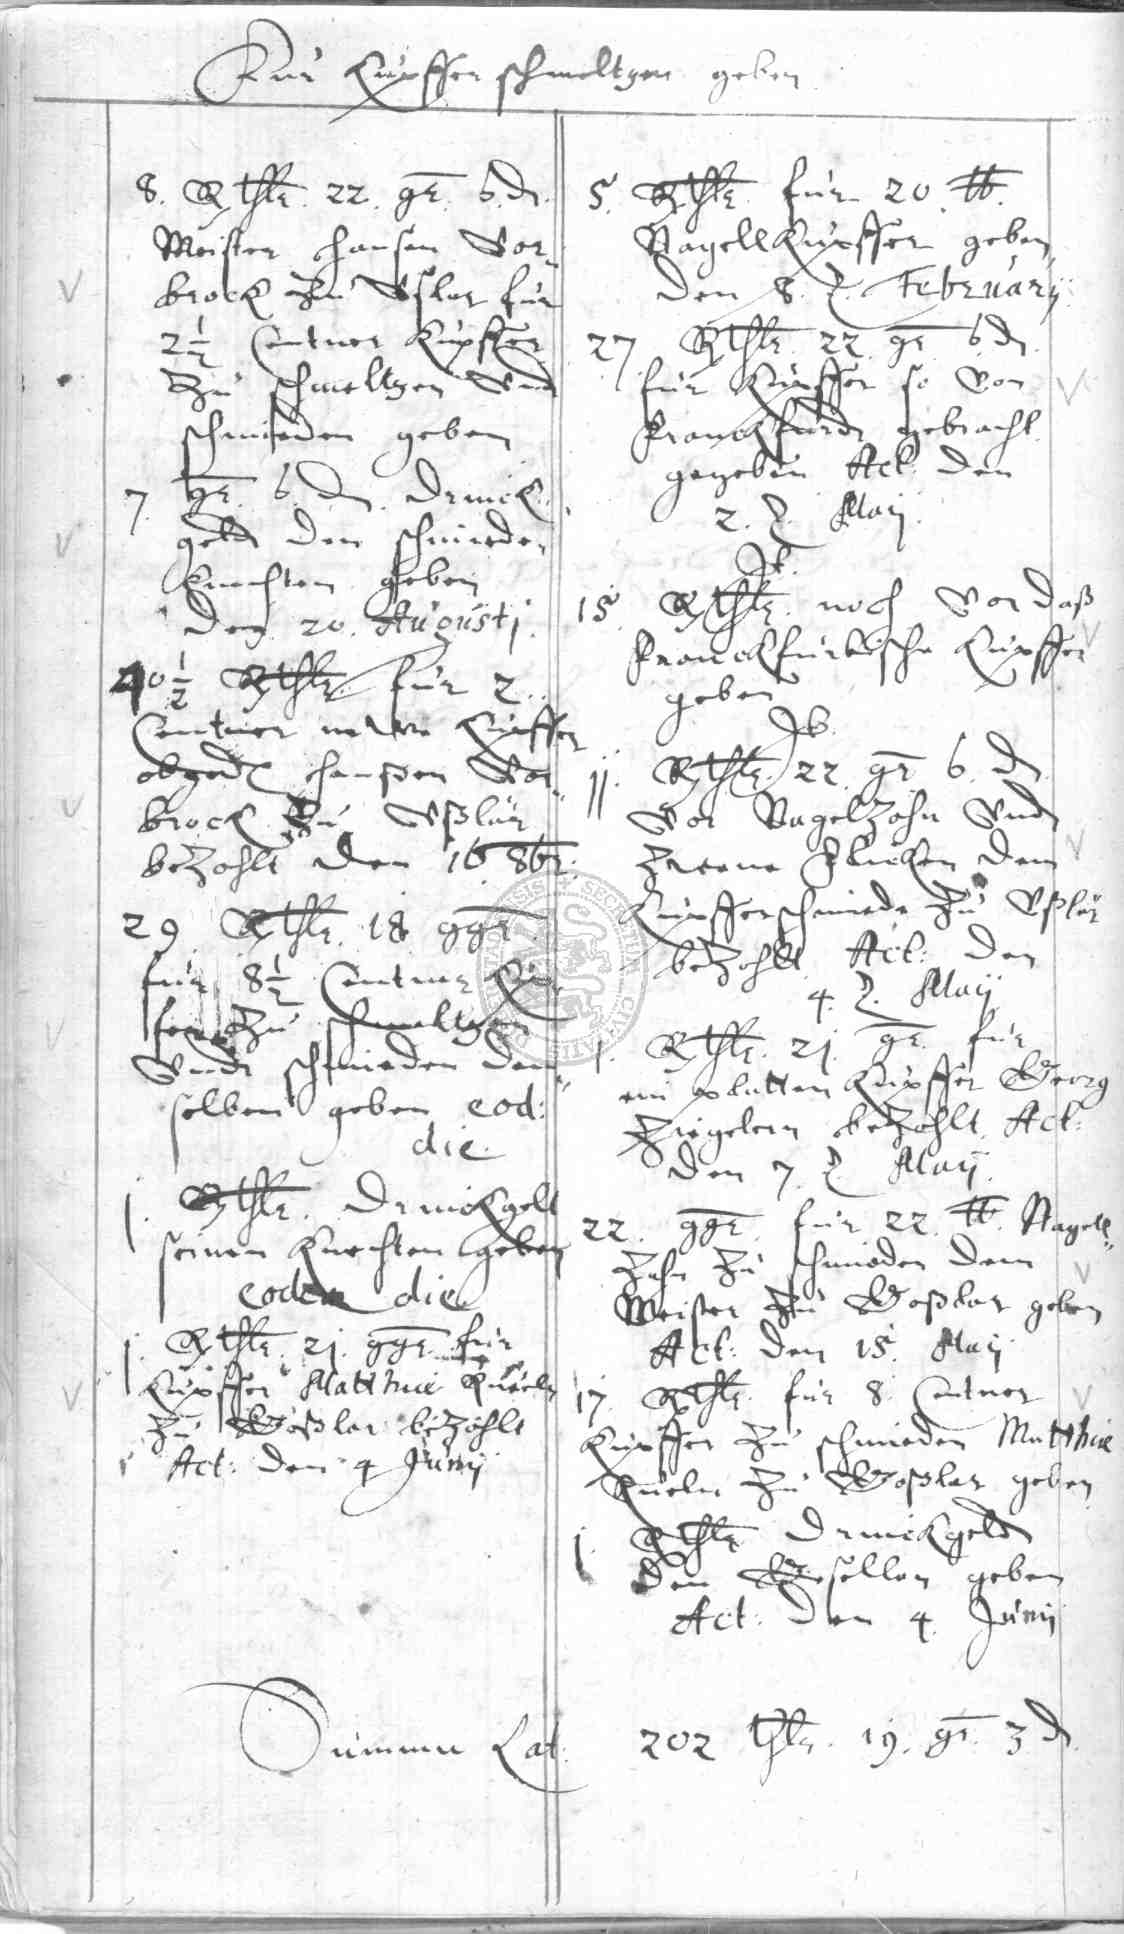 Für Kupffer schmeltzen geben
8. Rthlr. 22. gr. 6. d.
Meister Hansen Vor„
brock zu Ußlar für
2½ Centner Kupffer
zu schmeltzen Vnd
schmieden geben
7. gr. 6. d. Drinck„
geldt den schmiede„
knechten geben
den 20. Augusti.
40½ Rthlr. für 2.
Centner newe Kupffer
obged. Hanßen Vor„
brock zu Vßlar
bezahlt den 16. 8br.
29 Rthlr. 18 ggr.
für 8½ Centner Kup„
fer zu schmeltzen
Vndt schmieden dem„
selben geben eod:
die.
1. Rthlr. Drinckgelt
seinen Knechten geben
eodem die
1. Rthlr. 21. ggr. für
Kupffer Matthiae
zu Goßlar bezahlt
Act: den 4 Junij
5. Rthlr. für 20. lb.
Nagell Kupffer geben
den 8. Februarij
27 Rthlr. 22 gr 6. d.
für Kupffer so Von
Franckfurdt gebracht
gegeben Act: den
2. Maij.
It.
15. Rthlr. noch Vor daß
Franckfurtische Kupffer
geben
It.
11. Rthlr. 22. gr 6. d.
Vor Nagelzohn Vndt
zweene den
Kupfferschmiede zu Vßlar
bezahlt Act: den
4. Maij
1. Rthlr. 21. gr. für
ein platten Kupffer Georg
Ziegelern bezahlt Act:
den 7. Maij.
22. ggr. für 22. lb. Nagell„
Zohn zu schmieden dem
Meister zu Goßlar geben
Act: den 15. Maij
17. Rthlr. für 8. Centner
Kupffer zu schmieden Matthiae
zu Goßlar geben
1. Rthlr. Drinckgeldt
den Gesellen geben
Act: den 4. Junij
Summa Lat. 202 thlr. 19. gr. 3 d.